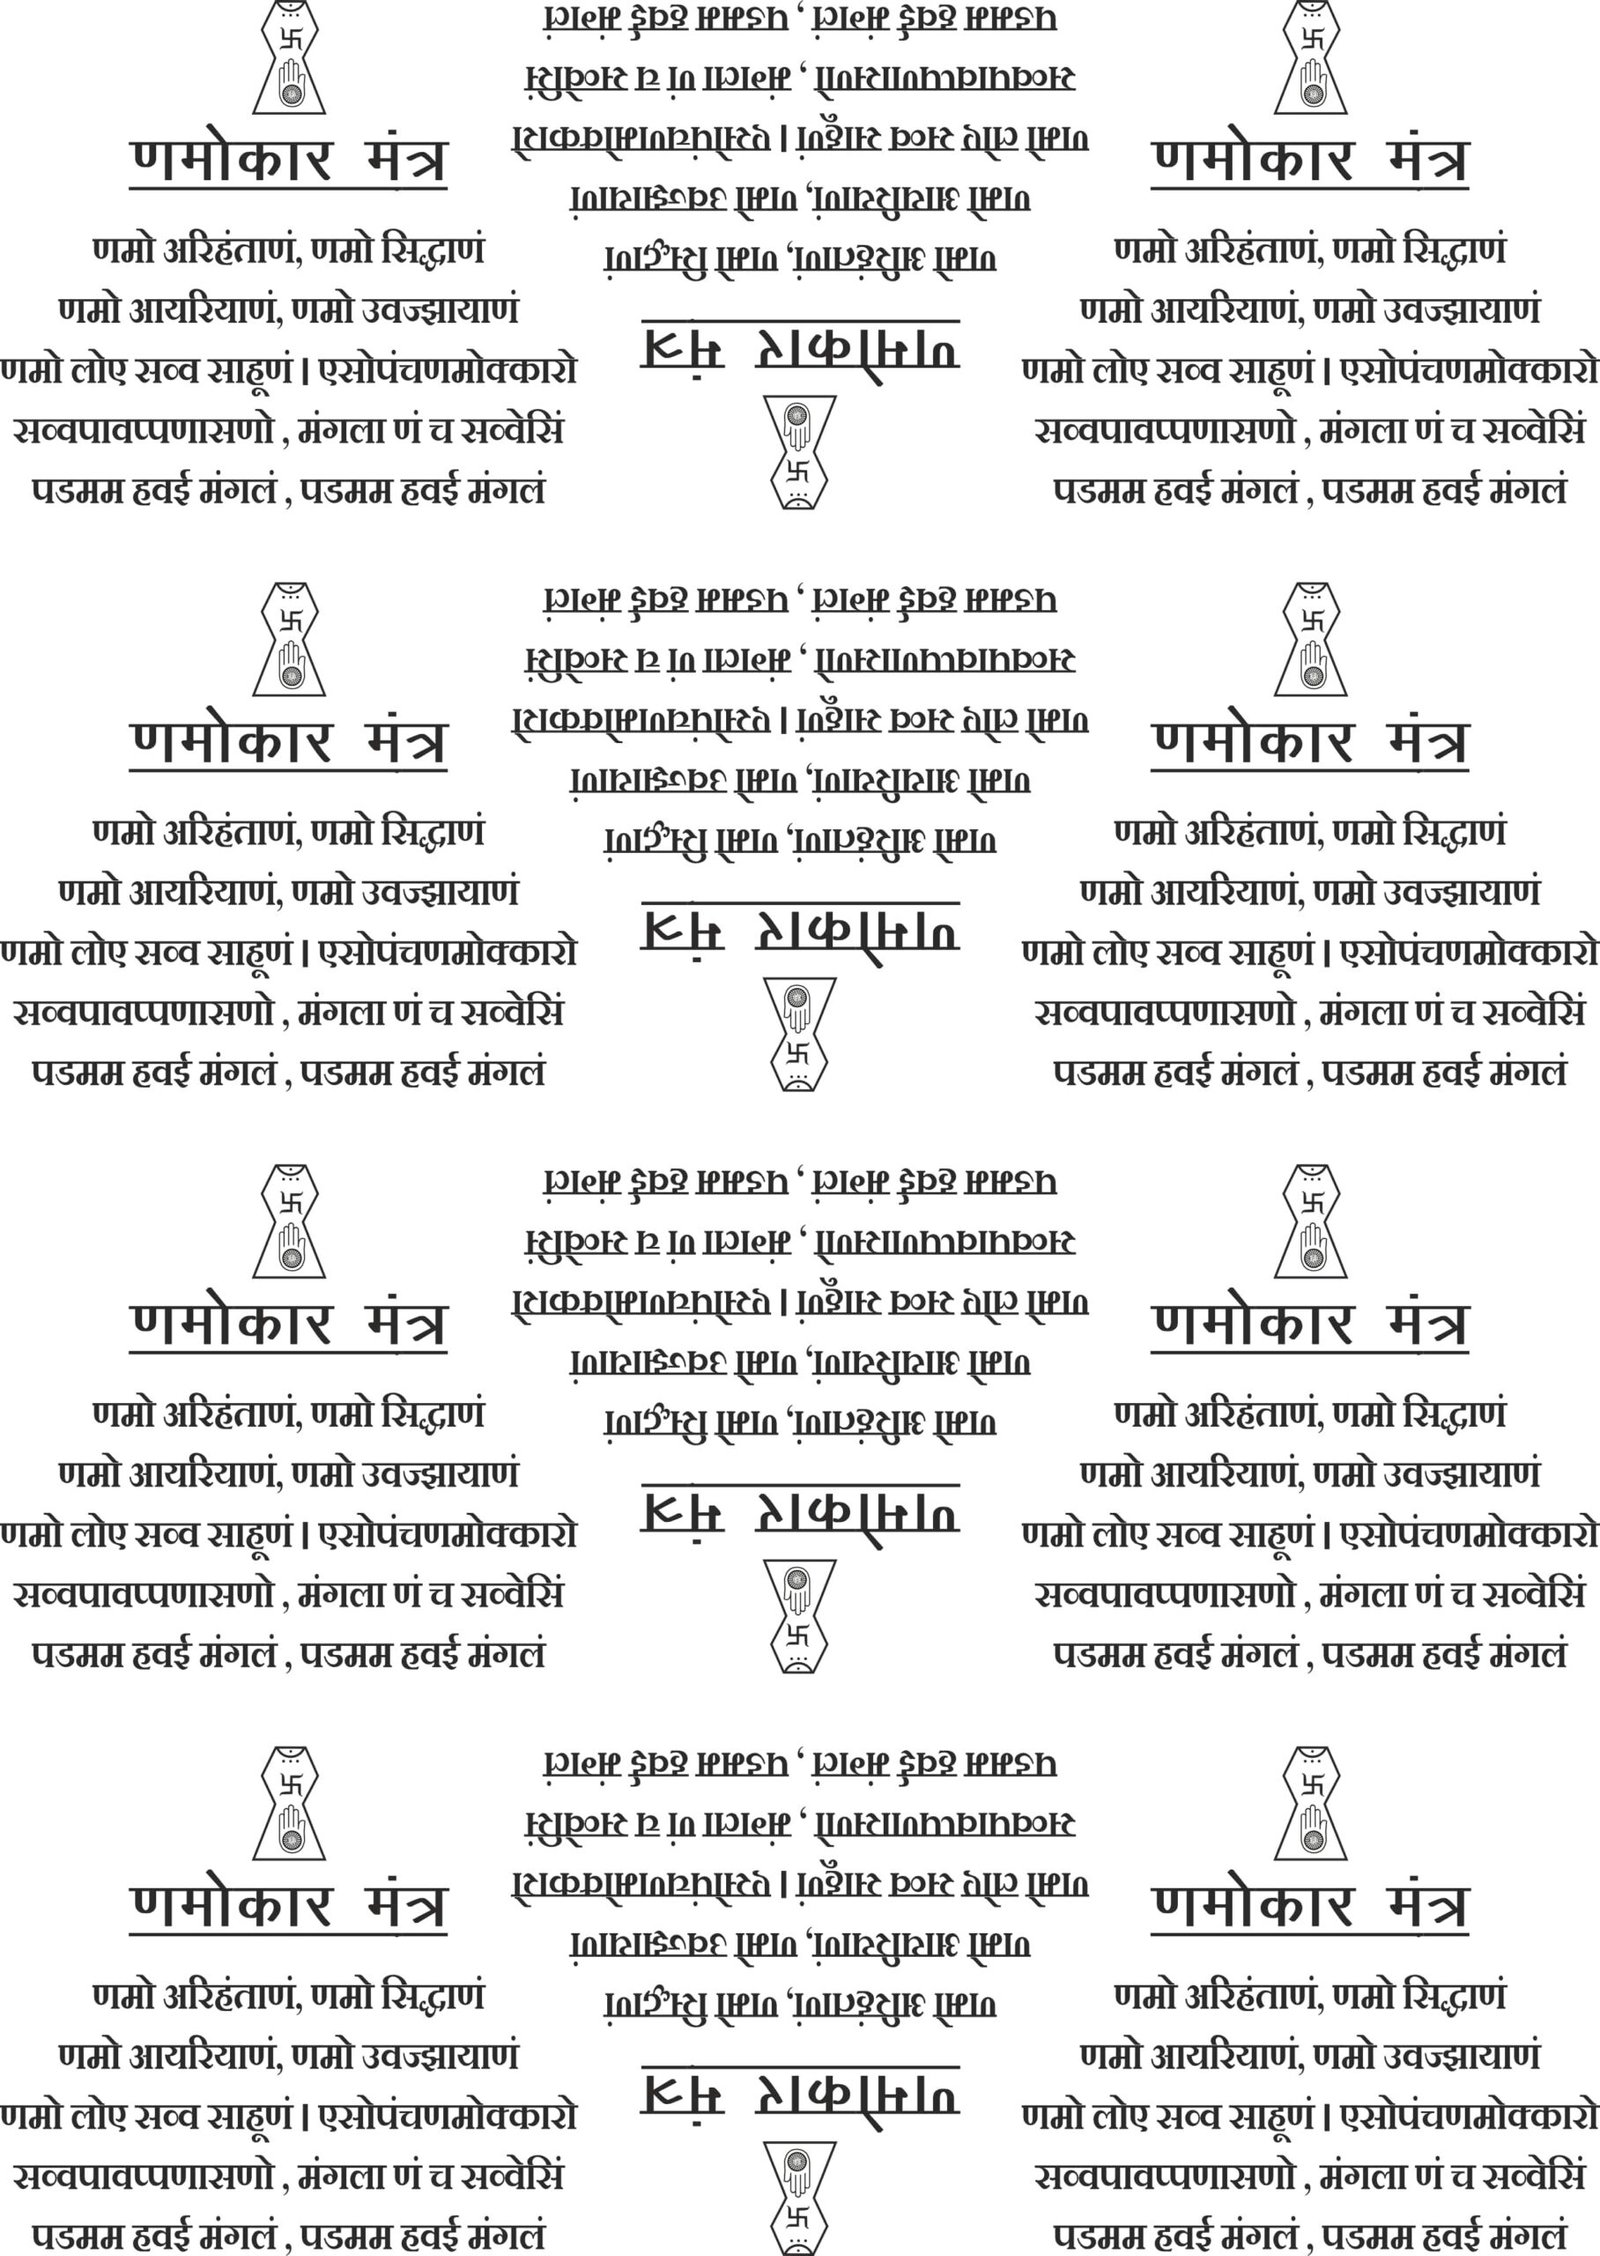 णमोकार मंत्र
णमो अरिहंताणं, णमो सिद्धाणं
णमो आयरियाणं, णमो उवज्झायाणं
णमो लोए सव्व साहूणं । एसोपंचणमोक्कारो
सव्वपावप्पणासणो , मंगला णं च सव्वेसिं
पडमम हवई मंगलं , पडमम हवई मंगलं
णमोकार मंत्र
णमो अरिहंताणं, णमो सिद्धाणं
णमो आयरियाणं, णमो उवज्झायाणं
णमो लोए सव्व साहूणं । एसोपंचणमोक्कारो
सव्वपावप्पणासणो , मंगला णं च सव्वेसिं
पडमम हवई मंगलं , पडमम हवई मंगलं
णमोकार मंत्र
णमो अरिहंताणं, णमो सिद्धाणं
णमो आयरियाणं, णमो उवज्झायाणं
णमो लोए सव्व साहूणं । एसोपंचणमोक्कारो
सव्वपावप्पणासणो , मंगला णं च सव्वेसिं
पडमम हवई मंगलं , पडमम हवई मंगलं
णमोकार मंत्र
णमो अरिहंताणं, णमो सिद्धाणं
णमो आयरियाणं, णमो उवज्झायाणं
णमो लोए सव्व साहूणं । एसोपंचणमोक्कारो
सव्वपावप्पणासणो , मंगला णं च सव्वेसिं
पडमम हवई मंगलं , पडमम हवई मंगलं
णमोकार मंत्र
णमो अरिहंताणं, णमो सिद्धाणं
णमो आयरियाणं, णमो उवज्झायाणं
णमो लोए सव्व साहूणं । एसोपंचणमोक्कारो
सव्वपावप्पणासणो , मंगला णं च सव्वेसिं
पडमम हवई मंगलं , पडमम हवई मंगलं
णमोकार मंत्र
णमो अरिहंताणं, णमो सिद्धाणं
णमो आयरियाणं, णमो उवज्झायाणं
णमो लोए सव्व साहूणं । एसोपंचणमोक्कारो
सव्वपावप्पणासणो , मंगला णं च सव्वेसिं
पडमम हवई मंगलं , पडमम हवई मंगलं
णमोकार मंत्र
णमो अरिहंताणं, णमो सिद्धाणं
णमो आयरियाणं, णमो उवज्झायाणं
णमो लोए सव्व साहूणं । एसोपंचणमोक्कारो
सव्वपावप्पणासणो , मंगला णं च सव्वेसिं
पडमम हवई मंगलं , पडमम हवई मंगलं
णमोकार मंत्र
णमो अरिहंताणं, णमो सिद्धाणं
णमो आयरियाणं, णमो उवज्झायाणं
णमो लोए सव्व साहूणं । एसोपंचणमोक्कारो
सव्वपावप्पणासणो , मंगला णं च सव्वेसिं
पडमम हवई मंगलं , पडमम हवई मंगलं
णमोकार मंत्र
णमो अरिहंताणं, णमो सिद्धाणं
णमो आयरियाणं, णमो उवज्झायाणं
णमो लोए सव्व साहूणं । एसोपंचणमोक्कारो
सव्वपावप्पणासणो , मंगला णं च सव्वेसिं
पडमम हवई मंगलं , पडमम हवई मंगलं
णमोकार मंत्र
णमो अरिहंताणं, णमो सिद्धाणं
णमो आयरियाणं, णमो उवज्झायाणं
णमो लोए सव्व साहूणं । एसोपंचणमोक्कारो
सव्वपावप्पणासणो , मंगला णं च सव्वेसिं
पडमम हवई मंगलं , पडमम हवई मंगलं
णमोकार मंत्र
णमो अरिहंताणं, णमो सिद्धाणं
णमो आयरियाणं, णमो उवज्झायाणं
णमो लोए सव्व साहूणं । एसोपंचणमोक्कारो
सव्वपावप्पणासणो , मंगला णं च सव्वेसिं
पडमम हवई मंगलं , पडमम हवई मंगलं
णमोकार मंत्र
णमो अरिहंताणं, णमो सिद्धाणं
णमो आयरियाणं, णमो उवज्झायाणं
णमो लोए सव्व साहूणं । एसोपंचणमोक्कारो
सव्वपावप्पणासणो , मंगला णं च सव्वेसिं
पडमम हवई मंगलं , पडमम हवई मंगलं